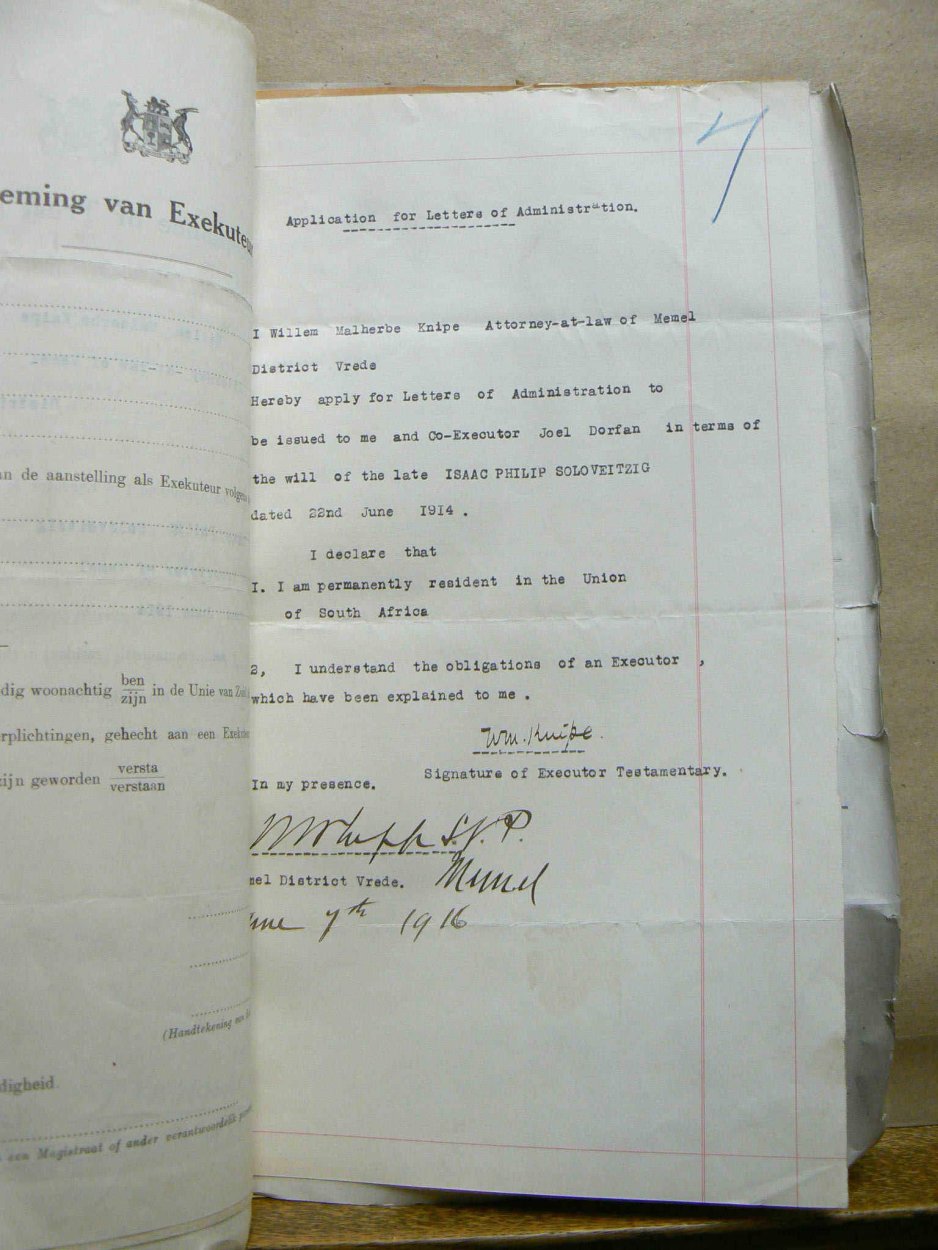 eming van Exekuteur
an de aanstelling als Exekuteur volgens
dig woonachtig ben
zijn in de Unie van Zuid
rplichtingen, gehecht aan een Exekuteur
zijn geworden versta
verstaan
(Handtekening van
digheid
een Magistraat of ander verantwoordelik
7
Application for Letters of Administration.
I Willem Malherbe Knipe Attorney-at-law of Memel
District Vrede
Hereby apply for Letters of Administration to
be issued to me and Co-Executor Joel Dorfan in terms of
the will of the late ISAAC PHILIP SOLOVEITZIG
dated 22nd June I9I4 .
I declare that
I. I am permanently resident in the Union
of South Africa
2, I understand the obligations of an Executor ,
which have been explained to me .
Wm. Knipe.
Signature of Executor Testamentary.
In my presence.
S.J.P.
mel District Vrede. Memel
une 7th 1916